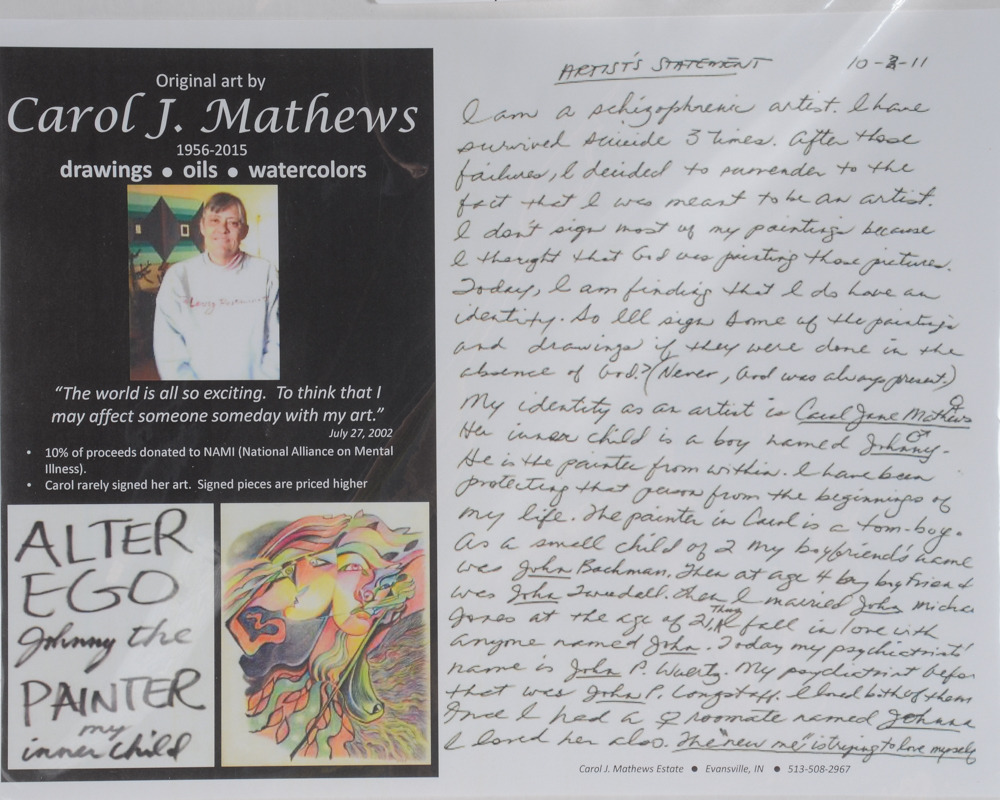 Original art by
Carol J. Mathews
1956-2015
drawings • oils • watercolors
"The world is all so exciting. To think that I
may affect someone someday with my art."
July 27, 2002
• 10% of proceeds donated to NAMI (National Alliance on Mental
Illness).
• Carol rarely signed her art. Signed pieces are priced higher
ALTER
EGO
Johnny the
PAINTER
my
inner child
ARTIST'S STATEMENT 10-2-11
I am a schizophrenic artist. I have
survived suicide 3 times. After those
failures, I decided to surrender to the
fact that I was meant to be an artist.
I don't sign most of my paintings because
I thought that God was painting those pictures.
Today, I am finding that I do have an
identity. So I'll sign some of the paintings
and drawings if they were done in the
absence of God? (Never, God was always present.)
My identity as an artist is Carol Jane Mathews ♀
Her inner child is a boy named Johnny ♂.
He is the painter from within. I have been
protecting that person from the beginnings of
my life. The painter in Carol is a tom-boy.
As a small child of 2 my boyfriend's name
was John Bachman. Then at age 4 boy friend
was John Twedell. then I married John Micha
Jones at the age of 21. Thing fall in love with
anyone named John. Today my psychiatrist'
name is John P. My psychiatrist befor
that was John P. Longstaff. I loved both of them
And I had a ♀ roomate named Johnna
I loved her also. The "new me" is trying to love myself
Carol J. Mathews Estate • Evansville, IN • 513-508-2967